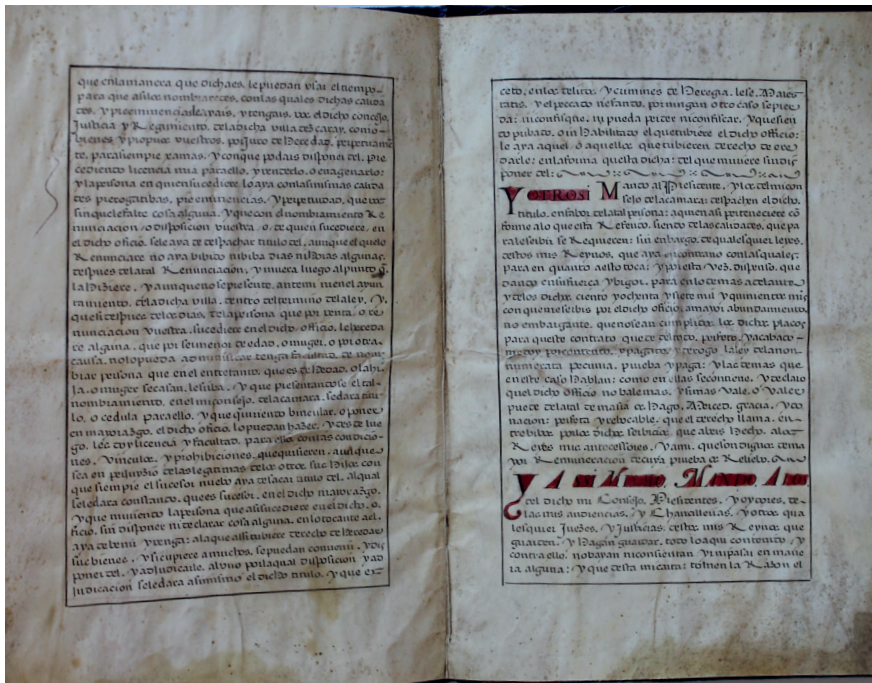 que en la manera que dicha es, le puedan usar el tiempo
para que asi los nombraredes, con las quales dichas calida
des, y preeminencias le ayais, y tengais, vos el dicho concejo,
Justicia y Regimiento, de la dicha villa de Caray, como
bienes, y propios vuestros, por Juro de Heredad, perpetuame
te, para siempre xamas. Y conque podais disponer del. Pre
cediendo licencia mia para ello, y venderlo, o enagenarlo:
y la persona en quien sucediere lo aya con las mismas calida
des prerogatibas, preeminencias. Y perpetuidad, que vos
sin que le falte cosa alguna. Y que con el nombramiento Re
nunciacion o disposicion vuestra o, de quien sucediere, en
el dicho oficio, se le aya de despachar titulo del, aunque el que lo
Renunciare no aya bibido ni biba dias ni Horas algunas,
despues de la tal Renunciacion, y muera luego al punto q̃
la Hiziere. Y aunque no se presente, ante mi ni en el ayun
tamiento, de la dicha villa, dentro del termino de la ley. Y,
que si despues de los dias, de la persona que por renta, o re
nunciacion vuestra, sucediere en el dicho, officio, lo Hereda
re alguna, que por ser menor de edad, o muger, o por otra
causa, no lo pueda administrar tenga facultad, de nom
brar persona que en el entretanto, que es de Hedad, o la hi
ja, o muger se casan, le sirba. Y que presentandose el tal
nombramiento, en el mi consejo, de la camara, se dara titu
lo, o cedula para ello, y que quiriendo bincular, o poner
en mayorazgo, el dicho oficio, lo puedan hazer, y desde lue
go, les doy licencia y facultad, para ello con las condicio
nes, vinculos, y prohibiciones, que quisieren, aunque
sea en perjuyzio de las legitimas de los otros sus Hijos con
que siempre el sucesor nuebo aya de sacar titulo del, al qual
se le dara constando, que es sucesor, en el dicho mayorazgo,
y que muriendo la persona que asi sucediere en el dicho, o,
ficio, sin disponer ni declarar cosa alguna, en lo tocante a el,
aya de benir y benga: a la que asi tubiere derecho de Heredar
sus bienes, y si cupiere a muchos, se puedan convenir, y dis
poner del, y adjudicarle, al uno por la qual disposicion y ad
Judicacion se le dara asimismo el dicho titulo, y que ex
ceto, en los delitos, y crimines de Heregia, lese, Mages
tatis, y el peccado nefando, por ningun otro caso se pier
da: ni confisque, ni pueda perder ni confiscar, y que sien
do pribado, o inHabilitado el que tubiere el dicho officio:
lo aya aquel, o aquellos que tubieren derecho de ere
darle: en la forma que esta dicha: del que muriere sin dis
poner del:
Y OTROSI Mando al Presidente, y los del mi con
sejo de la camara: despachen el dicho,
titulo, en fabor de la tal persona: a quien asi perteneciere cō
forme a lo que esta Referido, siendo de las calidades, que pa
ra le serbir se Requieren: sin embargo, de qualesquier leyes,
destos mis Reynos, que aya en contrario con las quales:
para en quanto a esto toca: y por esta vez, dispenso, que
dando en su fuerça y bigor, para en lo de mas adelante,
y de los dichos, ciento y ochenta y siete mil y quinientos mrs
con que me serbis por el dicho oficio, a mayor abundamiento,
no embargante, que no sean cumplidos, los dichos plaços
para que sto contrato quede de todo, perfeto, y acabado
me doy por contento, y pagado, y derogo la ley de la non
numerata Pecunia, prueba y paga: y las demas que
en este caso Hablan: como en ellas se contiene, y declaro
que el dicho officio no bale mas, y si mas Vale, o Valer
puede de la tal demasia os Hago, Merced, gracia, y do
nacion: perfeta y rebocable, que el derecho llama, en
tre bibos por los dichos serbicios, que abeis Hecho, a los
Reyes mis antecessores, y a mi, que son dignos de ma
yor Remuneracion
Y A MI MISMO, MANDO A LOS,
del dicho mi Consejo, Presidentes, y oydores, de
las mis audiencias, y Chancillerias, y otros qua
lesquier Juezes, y Justicias, destos mis Reynos que
guarden, y Hagan guardar, todo lo aqui contenido, y
contra ello, no bayan ni consientan yr ni pasar en mane
ra alguna: y que desta mi carta: tomen la Razon el